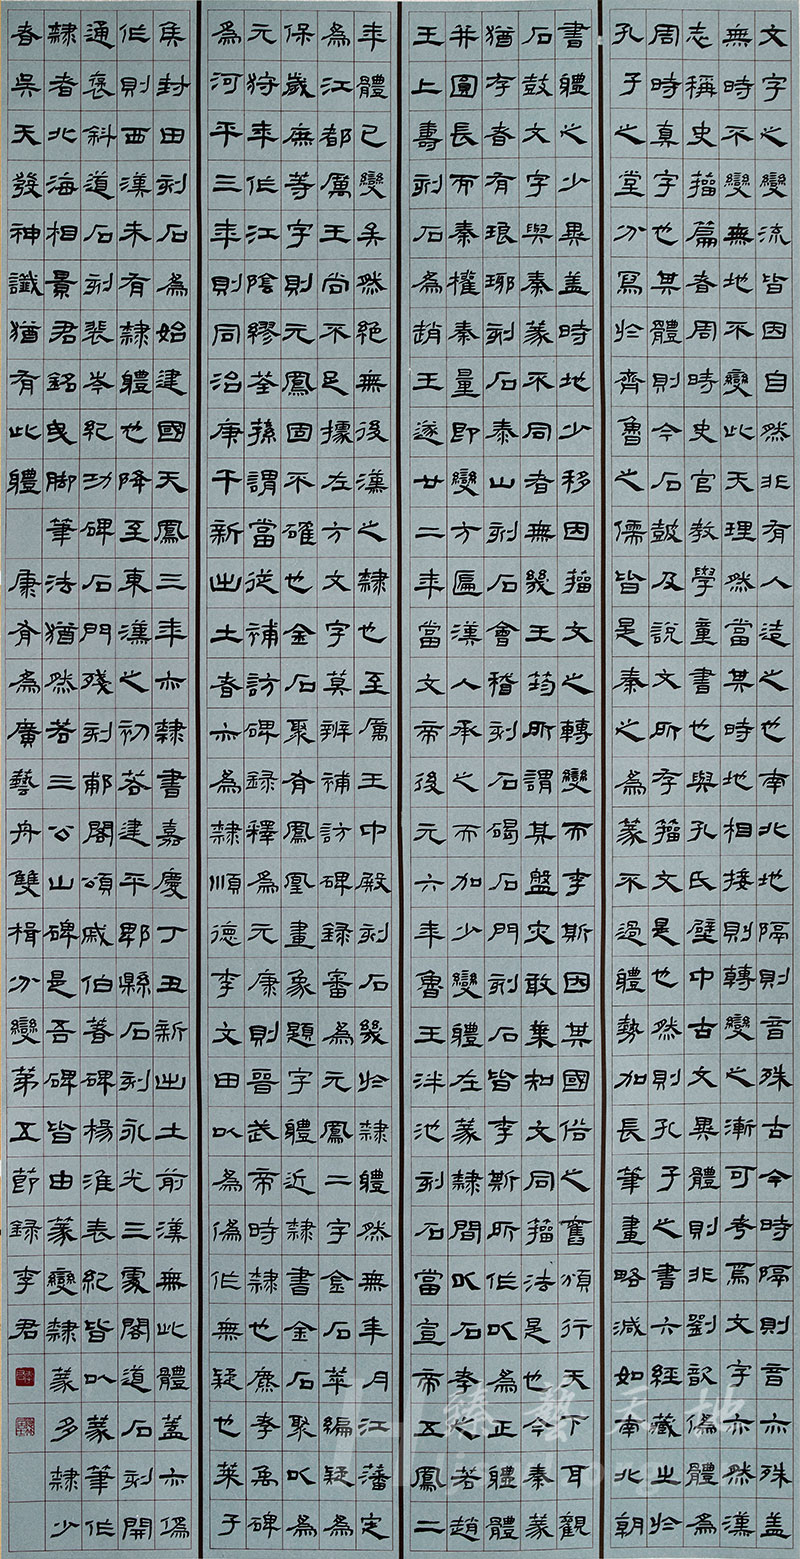 文字之變流皆因自然非有人造之也南北地隔則音殊古今時隔則音亦殊蓋
無時不變無地不變此天理然當其時地相接則轉變之漸可考焉文字亦然漢
志稱史籀篇者周時史官教學童書也與孔氏壁中古文異體則非劉歆偽體為
周時真字也其體則今石鼓及說文所存籀文是也然則孔子之書六經藏之於
孔子之堂分寫於齊魯之儒皆是秦之為篆不過體勢加長筆畫略減如南北朝
書體之少異蓋時地少移因籀文之轉變而李斯因其國俗之舊頒行天下耳觀
石鼓文字與秦篆不同者無幾王筠所謂其盤灾敢棄知文同籀法是也今秦篆
猶存者有琅琊刻石泰山刻石會稽刻石碣石門刻石皆李斯所作以為正體體
并圓長而秦權秦量即變方匾漢人承之而加少變體在篆隸間以石考之若趙
王上壽刻石為趙王遂廿二年當文帝後元六年魯王泮池刻石當宣帝五鳳二
年體已變矣然絕無後漢之隸也至厲王中殿刻石幾於隸體然無年月江藩定
為江都厲王尚不足據左方文字莫辨補訪碑錄審為元鳳二字金石萃編疑為
保歲庶等字則元鳳固不確也金石聚有鳳凰畫象題字體近隸書金石聚以為
元狩年作江陰繆荃蓀謂當從補訪碑錄釋為元康則晉武帝時隸也麃孝禹碑
為河平三年則同治庚午新出土者亦為隸順德李文田以為偽作無疑也萊子
侯封田刻石為始建國天鳳三年亦隸書嘉慶丁丑新出土前漢無此體蓋亦偽
作則西漢未有隸體也降至東漢之初若建平郫縣石刻永光三處閣道石刻開
通褒斜道石刻裴岑紀功碑石門殘刻郙閣頌戚伯著碑楊淮表紀皆以篆筆作
隸者北海相景君銘曳脚筆法猶然若三公山碑是吾碑皆由篆變隸篆多隸少
者吳天發神讖猶有此體 康有為廣藝舟雙楫分變第五節錄李君